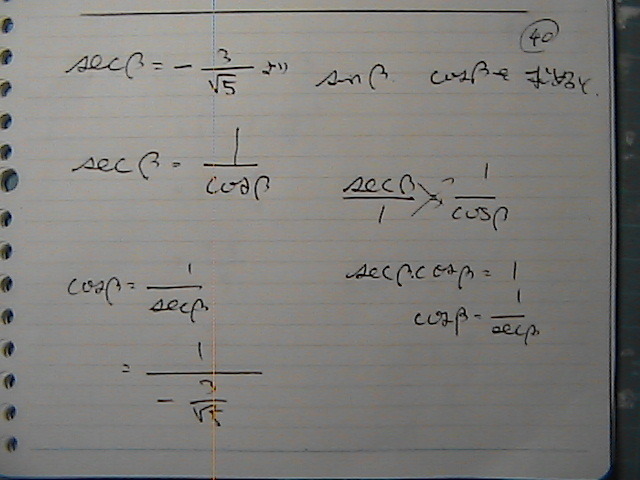 40
secβ = - 3/√5 より sinβ. cosβを求めよ.
secβ = 1/cosβ
secβ/1 = 1/cosβ
cosβ = 1/secβ
secβ.cosβ = 1
cosβ = 1/secβ
= 1/(- 3/√5)